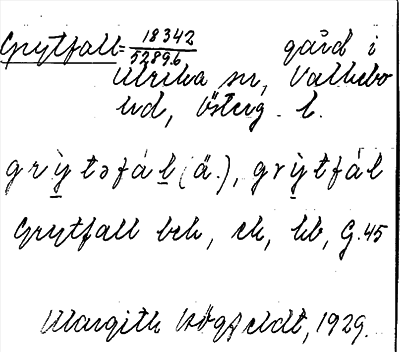 Grytfall = 18342/52896 gård i
Ulrika sn, Valkebo
hd, Österg. l.
grỳtəfál (ä.), grỳtfál
Grytfall bek, ek, hb, G.45
Margith Högfeldt, 1929.